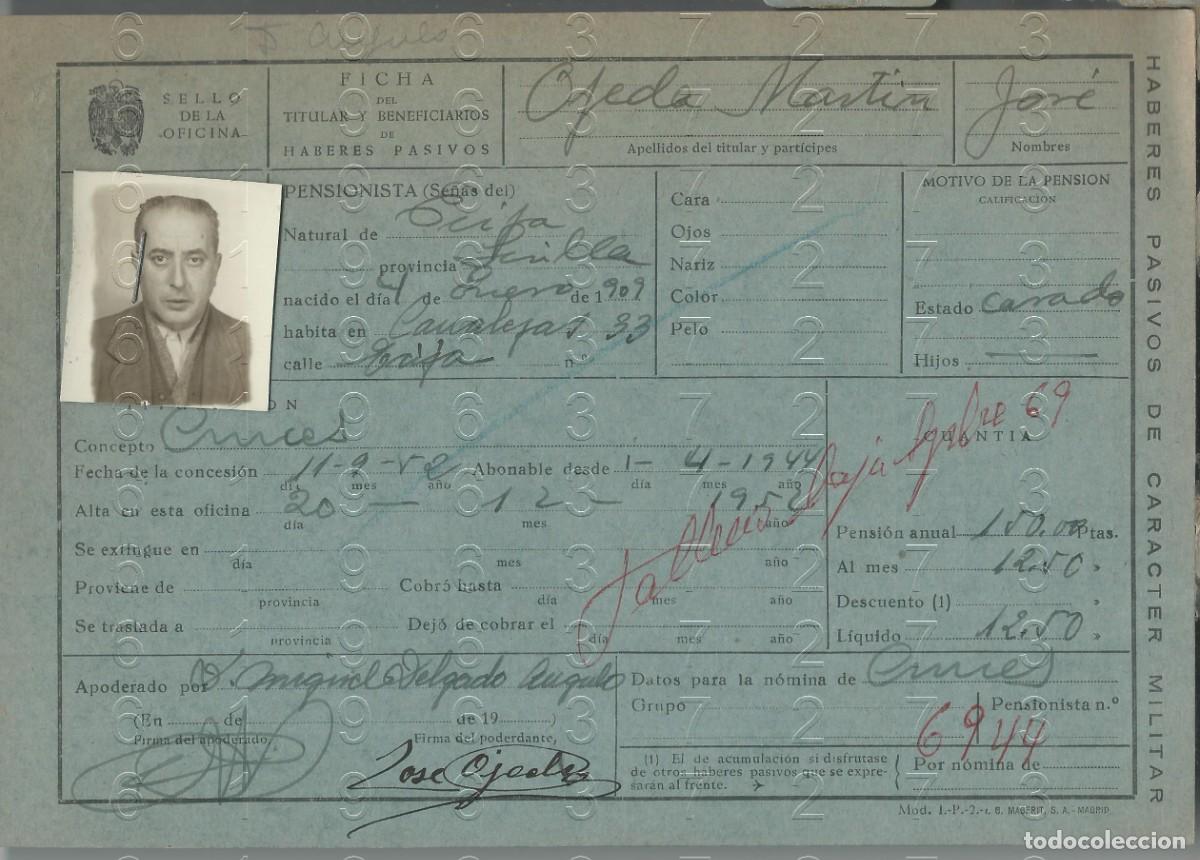 SELLO
DE LA
OFICINA
FICHA
DEL
TITULAR Y BENEFICIARIOS
DE
HABERES PASIVOS
Ojeda Martin
Apellidos del titular y partícipes
José
Nombres
HABERES PASIVOS DE CARACTER MILITAR
PENSIONISTA (Señas del)
Natural de
provincia Sevilla
nacido el día 4 de Enero de 1909
habita en Canalejas 33
calle nº
Cara
Ojos
Nariz
Color
Pelo
MOTIVO DE LA PENSION
CALIFICACIÓN
Estado Casado
Hijos
Concepto Cruces
Fecha de la concesión 11-9-52 Abonable desde 1-4-1944
día mes año día mes año
Alta en esta oficina 20 - 12 - 1952
día mes año
Se extingue en
día mes año
Proviene de Cobró hasta
provincia día mes año
Se traslada a Dejó de cobrar el
provincia día mes año
Falleció Baja Sptbre 69
CUANTIA
Pensión anual 150.00 Ptas.
Al mes 12.50 »
Descuento (1) »
Líquido 12.50 »
Apoderado por D. Miguel Delgado Angulo
(En de de 19 )
Firma del apoderado, Firma del poderdante,
Jose Ojeda
Datos para la nómina de Cruces
Grupo Pensionista n.º
6944
(1) El de acumulación si disfrutase
de otros haberes pasivos que se expre-
sarán al frente.
Por nómina de
Mod. 1.-P.-2.- MAGERIT, S. A. - MADRID
todocoleccion
6 1 9 6 3 7 2 7 3